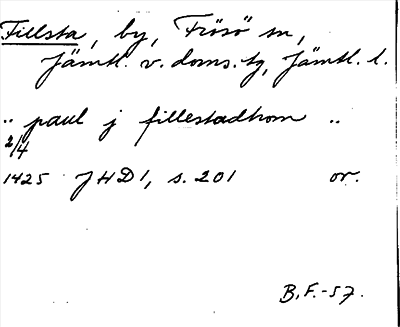 Fillsta, by, Frösö sn,
Jämtl. v. doms. tg, Jämtl. l.
„ paul j fillestadhom „
2/4
1425 JHD 1, s. 201 or.
B. F. -57.